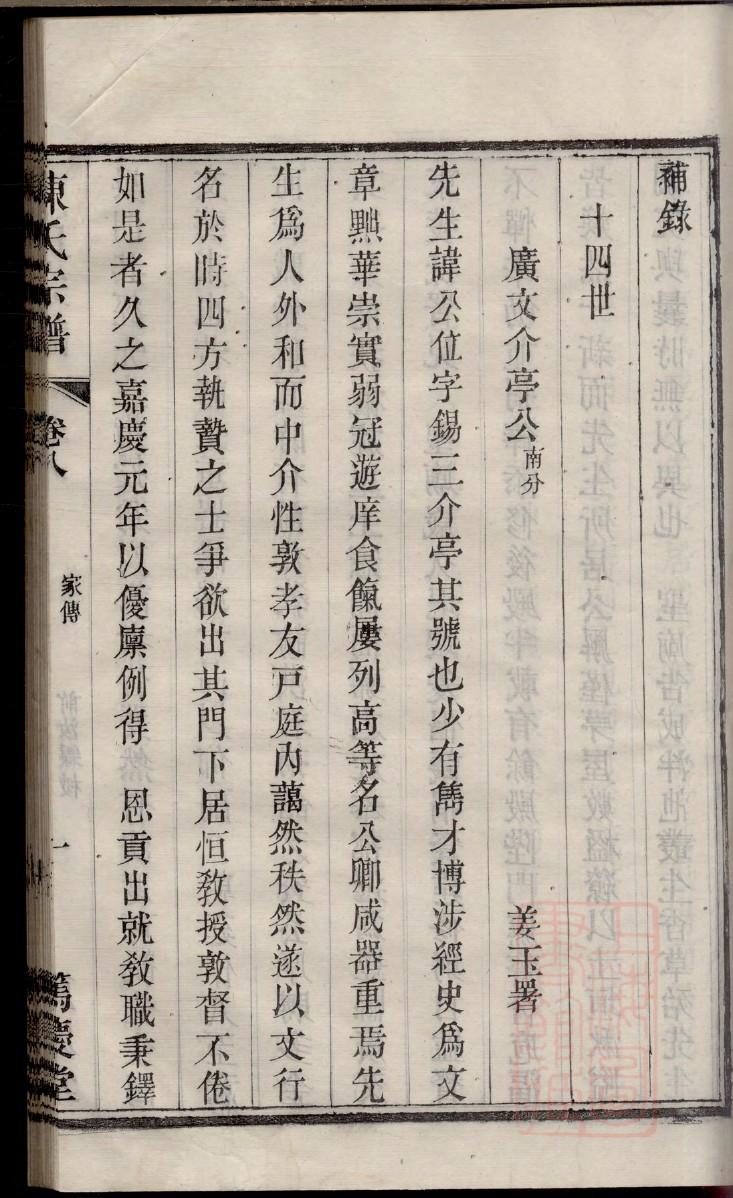 補錄
十四世
廣文介亭公南分　姜玉署
先生諱公位字錫三介亭其號也少有雋才博涉經史爲文
章黜華崇實弱冠遊庠食餼屢列高等名公卿咸器重焉先
生爲人外和而中介性敦孝友戸庭內藹然秩然遂以文行
名於時四方執贄之士爭欲出其門下居恒敎授敦督不倦
如是者久之嘉慶元年以優廩例得　恩貢出就敎職秉鐸
陳氏宗譜　卷八　家傳　一　篤慶堂